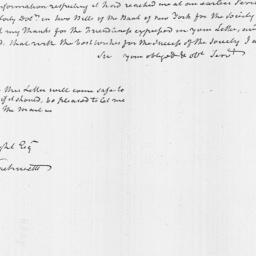 information respecting it had reached me at an earlier
forty Dolrs in two Bills of the Bank of New York for the Society
my thanks for the friendliness expressed in your Letter,
that with the best wishes for the success of the Society I a
Sir your obliged & obt Servt
this Letter will come safe to
if it should, be pleased to let me
the mail
Esq